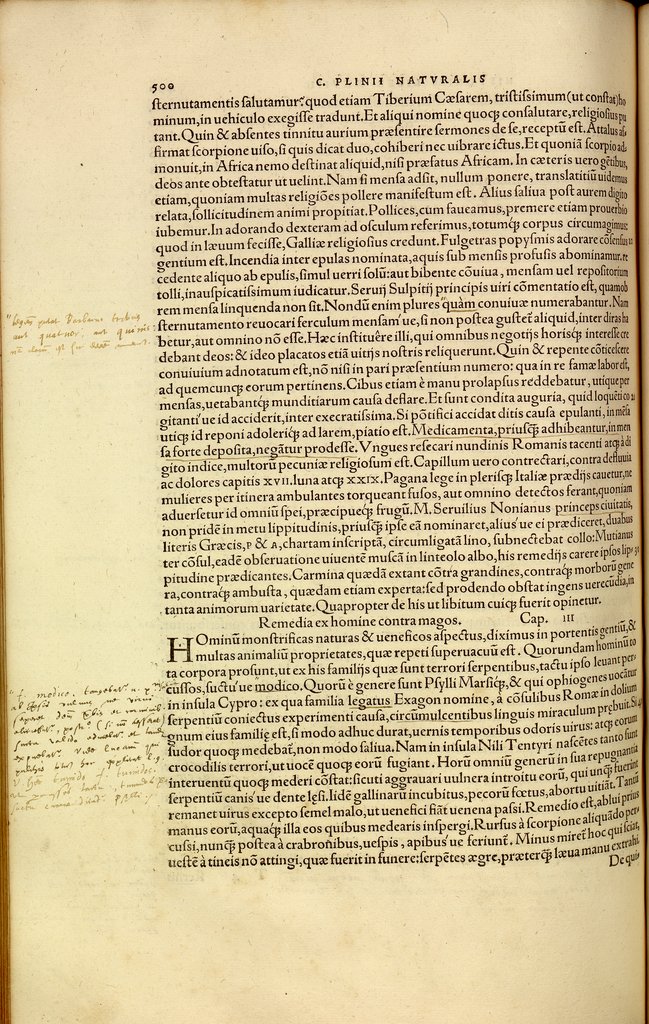 500
C. PLINII NATVRALIS
sternutamentis salutamur? quod etiam Tiberium Cæsarem, tristissimum (ut constat) ho
minum, in uehiculo exegisse tradunt. Et aliqui nomine quoqꝫ consalutare, religiosius pu
tant. Quin & absentes tinnitu aurium præsentire sermones de se, receptũ est. Attalus af
firmat scorpione uiso, si quis dicat duo, cohiberi nec uibrare ictus. Et quoniã scorpio ad
monuit, in Africa nemo destinat aliquid, nisi præfatus Africam. In cæteris uero gẽtibus,
deos ante obtestatur ut uelint. Nam si mensa adsit, nullum ponere, translatitiũ uidemus
etiam, quoniam multas religiões pollere manifestum est. Alius saliua post aurem digito
relata, sollicitudinem animi propitiat. Pollices, cum faueamus, premere etiam prouerbio
iubemur. In adorando dexteram ad osculum referimus, totumqꝫ corpus circumagimus:
quod in læuum fecisse, Galliæ religiosius credunt. Fulgetras popysmis adorare cõsensus
gentium est. Incendia inter epulas nominata, aquis sub mensis profusis abominamur. re
cedente aliquo ab epulis, simul uerri solũ: aut bibente cõuiua, mensam uel repositorium
tolli, inauspicatissimum iudicatur. Seruij Sulpitij principis uiri cõmentatio est, quamob
rem mensa linquenda non sit. Nondũ enim plures quàm conuiuæ numerabantur. Nam
sternutamento reuocari ferculum mensam'ue, si non postea gustet̃ aliquid, inter diras ha
betur, aut omnino nõ esse. Hæc instituêre illi, qui omnibus negotijs horisqꝫ interesse cre
debant deos: & ideo placatos etiã uitijs nostris reliquerunt. Quin & repente cõticescere
conuiuium adnotatum est, nõ nisi in pari præsentium numero: qua in re famæ labor est,
ad quemcunqꝫ eorum pertinens. Cibus etiam è manu prolapsus reddebatur, utique per
mensas, uetabantqꝫ munditiarum causa deflare. Et sunt condita auguria, quid loquẽti co
gitanti'ue id acciderit, inter execratissima. Si põtifici accidat ditis causa epulanti, in mẽsa
utiqꝫ id reponi adoleriqꝫ ad larem, piatio est. Medicamenta, priusqꝫ adhibeantur, in men
sa forte deposita, negãtur prodesse. Vngues resecari nundinis Romanis tacenti atqꝫ à di
gito indice, multorũ pecuniæ religiosum est. Capillum uero contrectari, contra defluuia
ac dolores capitis XVII. luna atqꝫ XXIX. Pagana lege in plerisqꝫ Italiæ prædijs cauetur, ne
mulieres per itinera ambulantes torqueant fusos, aut omnino detectos ferant, quoniam
aduersetur id omniũ spei, præcipueqꝫ frugũ. M. Seruilius Nonianus princeps ciuitatis,
non pridẽ in metu lippitudinis, priusqꝫ ipse eã nominaret, alius'ue ei prædiceret, duabus
literis Græcis, P & A, chartam inscriptã, circumligatã lino, subnectebat collo: Mutianus
ter cõsul, eadẽ obseruatione uiuentẽ muscã in linteolo albo, his remedijs carere ipsos lip
pitudine prædicantes. Carmina quædã extant cõtra grandines, contraqꝫ morborũ gene
ra, contraqꝫ ambusta, quædam etiam experta: sed prodendo obstat ingens uerecũdia, in
tanta animorum uarietate. Quapropter de his ut libitum cuiqꝫ fuerit opinetur.
Remedia ex homine contra magos. Cap. III
HOminũ monstrificas naturas & ueneficos aspectus, diximus in portentis gentiũ, &
multas animaliũ proprietates, quæ repeti superuacuũ est. Quorundam hominũ to
ta corpora prosunt, ut ex his familijs quæ sunt terrori serpentibus, tactu ipso leuant per
cussos, suctu'ue modico. Quorũ è genere sunt Psylli Marsiqꝫ, & qui ophiogenes uocãtur
in insula Cypro: ex qua familia legatus Exagon nomine, à cõsulibus Romæ in dolium
serpentiũ coniectus experimenti causa, circũmulcentibus linguis miraculum prebuit.
gnum eius familię est, si modo adhuc durat, uernis temporibus odoris uirus: atqꝫ eorum
sudor quoqꝫ medebat̃, non modo saliua. Nam in insula Nili Tentyri nascẽtes tanto sunt
crocodilis terrori, ut uocẽ quoqꝫ eorũ fugiant. Horũ omniũ generũ in sua repugnantia
interuentũ quoqꝫ mederi cõstat: sicuti aggrauari uulnera introitu eorũ, qui unqꝫ fuerint
serpentiũ canis'ue dente lęsi. Iidẽ gallinarũ incubitus, pecorũ fœtus, abortu uitiãt. Tantũ
remanet uirus excepto semel malo, ut uenefici fiãt uenena passi. Remedio est, ablui prius
manus eorũ, aquaqꝫ illa eos quibus medearis inspergi. Rursus à scorpione aliquãdo per
cussi, nunqꝫ postea à crabronibus, uespis, apibus'ue feriunt̃. Minus miret̃ hoc qui sciat,
uestẽ à tineis nõ attingi, quæ fuerit in funere: serpẽtes ægre, præterqꝫ læua manu extrahi.
De quis